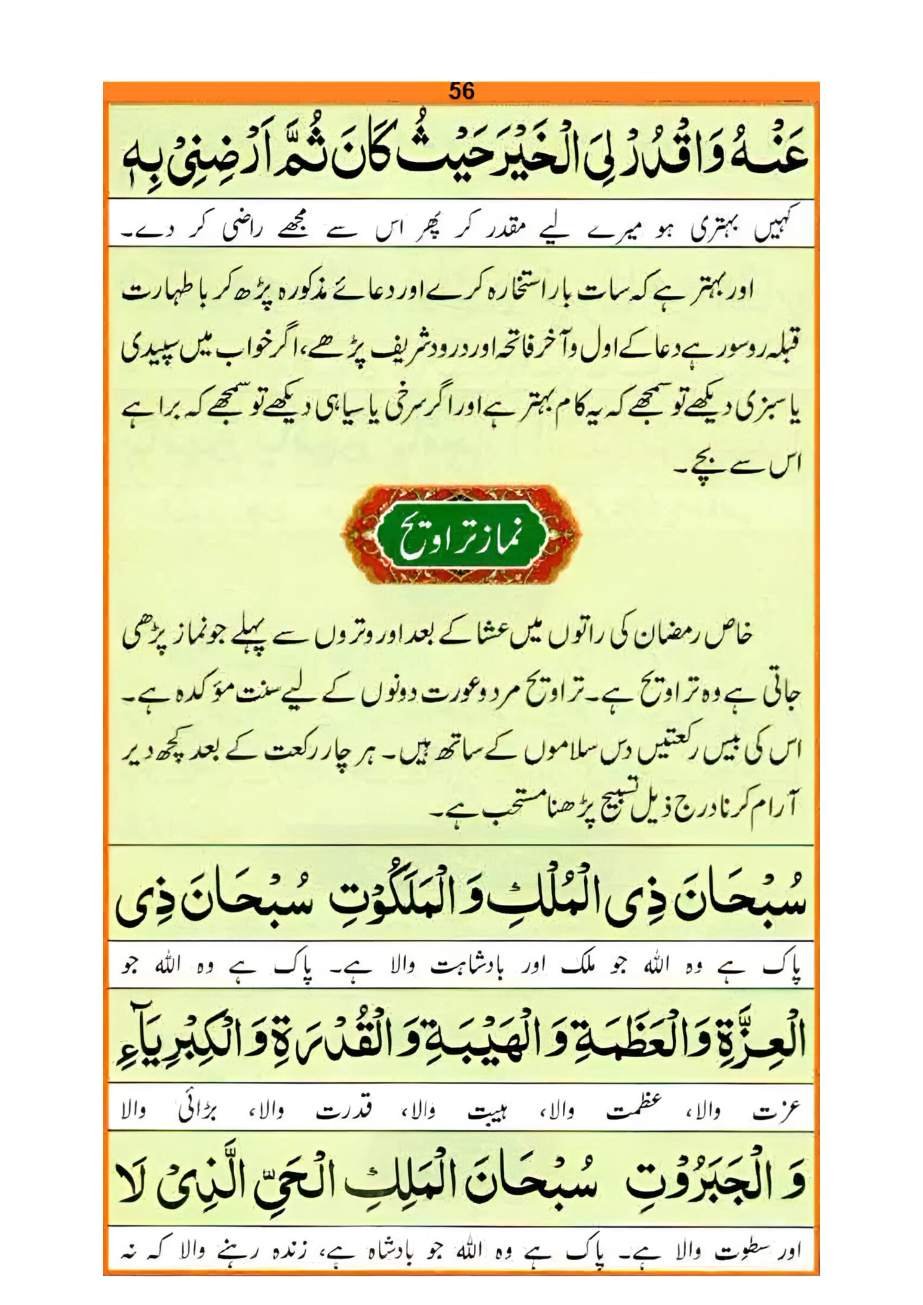 56
عَنْهُ وَاقْدُرْ لِیَ الْخَیْرَ حَیْثُ کَانَ ثُمَّ اَرْضِنِیْ بِهٖ
کہیں بہتری ہو میرے لیے مقدر کر پھر اس سے مجھے راضی کر دے۔
اور بہتر ہے کہ سات بار استخارہ کرے اور دعائے مذکورہ پڑھ کر باطہارت
قبلہ رو سو رہے دعا کے اول و آخر فاتحہ اور درود شریف پڑھے، اگر خواب میں سپیدی
یا سبزی دیکھے تو سمجھے کہ یہ کام بہتر ہے اور اگر سرخی یا سیاہی دیکھے تو سمجھے کہ برا ہے
اس سے بچے۔
نماز تراویح
خاص رمضان کی راتوں میں عشا کے بعد اور وتروں سے پہلے جو نماز پڑھی
جاتی ہے وہ تراویح ہے۔ تراویح مرد و عورت دونوں کے لیے سنت مؤکدہ ہے۔
اس کی بیس رکعتیں دس سلاموں کے ساتھ ہیں۔ ہر چار رکعت کے بعد کچھ دیر
آرام کرنا درج ذیل تسبیح پڑھنا مستحب ہے۔
سُبْحَانَ ذِی الْمُلْكِ وَ الْمَلَكُوْتِ سُبْحَانَ ذِی
پاک ہے وہ اللہ جو ملک اور بادشاہت والا ہے۔ پاک ہے وہ اللہ جو
الْعِزَّةِ وَالْعَظَمَةِ وَ الْهَيْبَةِ وَ الْقُدْرَةِ وَ الْكِبْرِيَآءِ
عزت والا، عظمت والا، ہیبت والا، قدرت والا، بڑائی والا
وَ الْجَبَرُوْتِ سُبْحَانَ الْمَلِكِ الْحَیِّ الَّذِیْ لَا
اور سطوت والا ہے۔ پاک ہے وہ اللہ جو بادشاہ ہے، زندہ رہنے والا کہ نہ